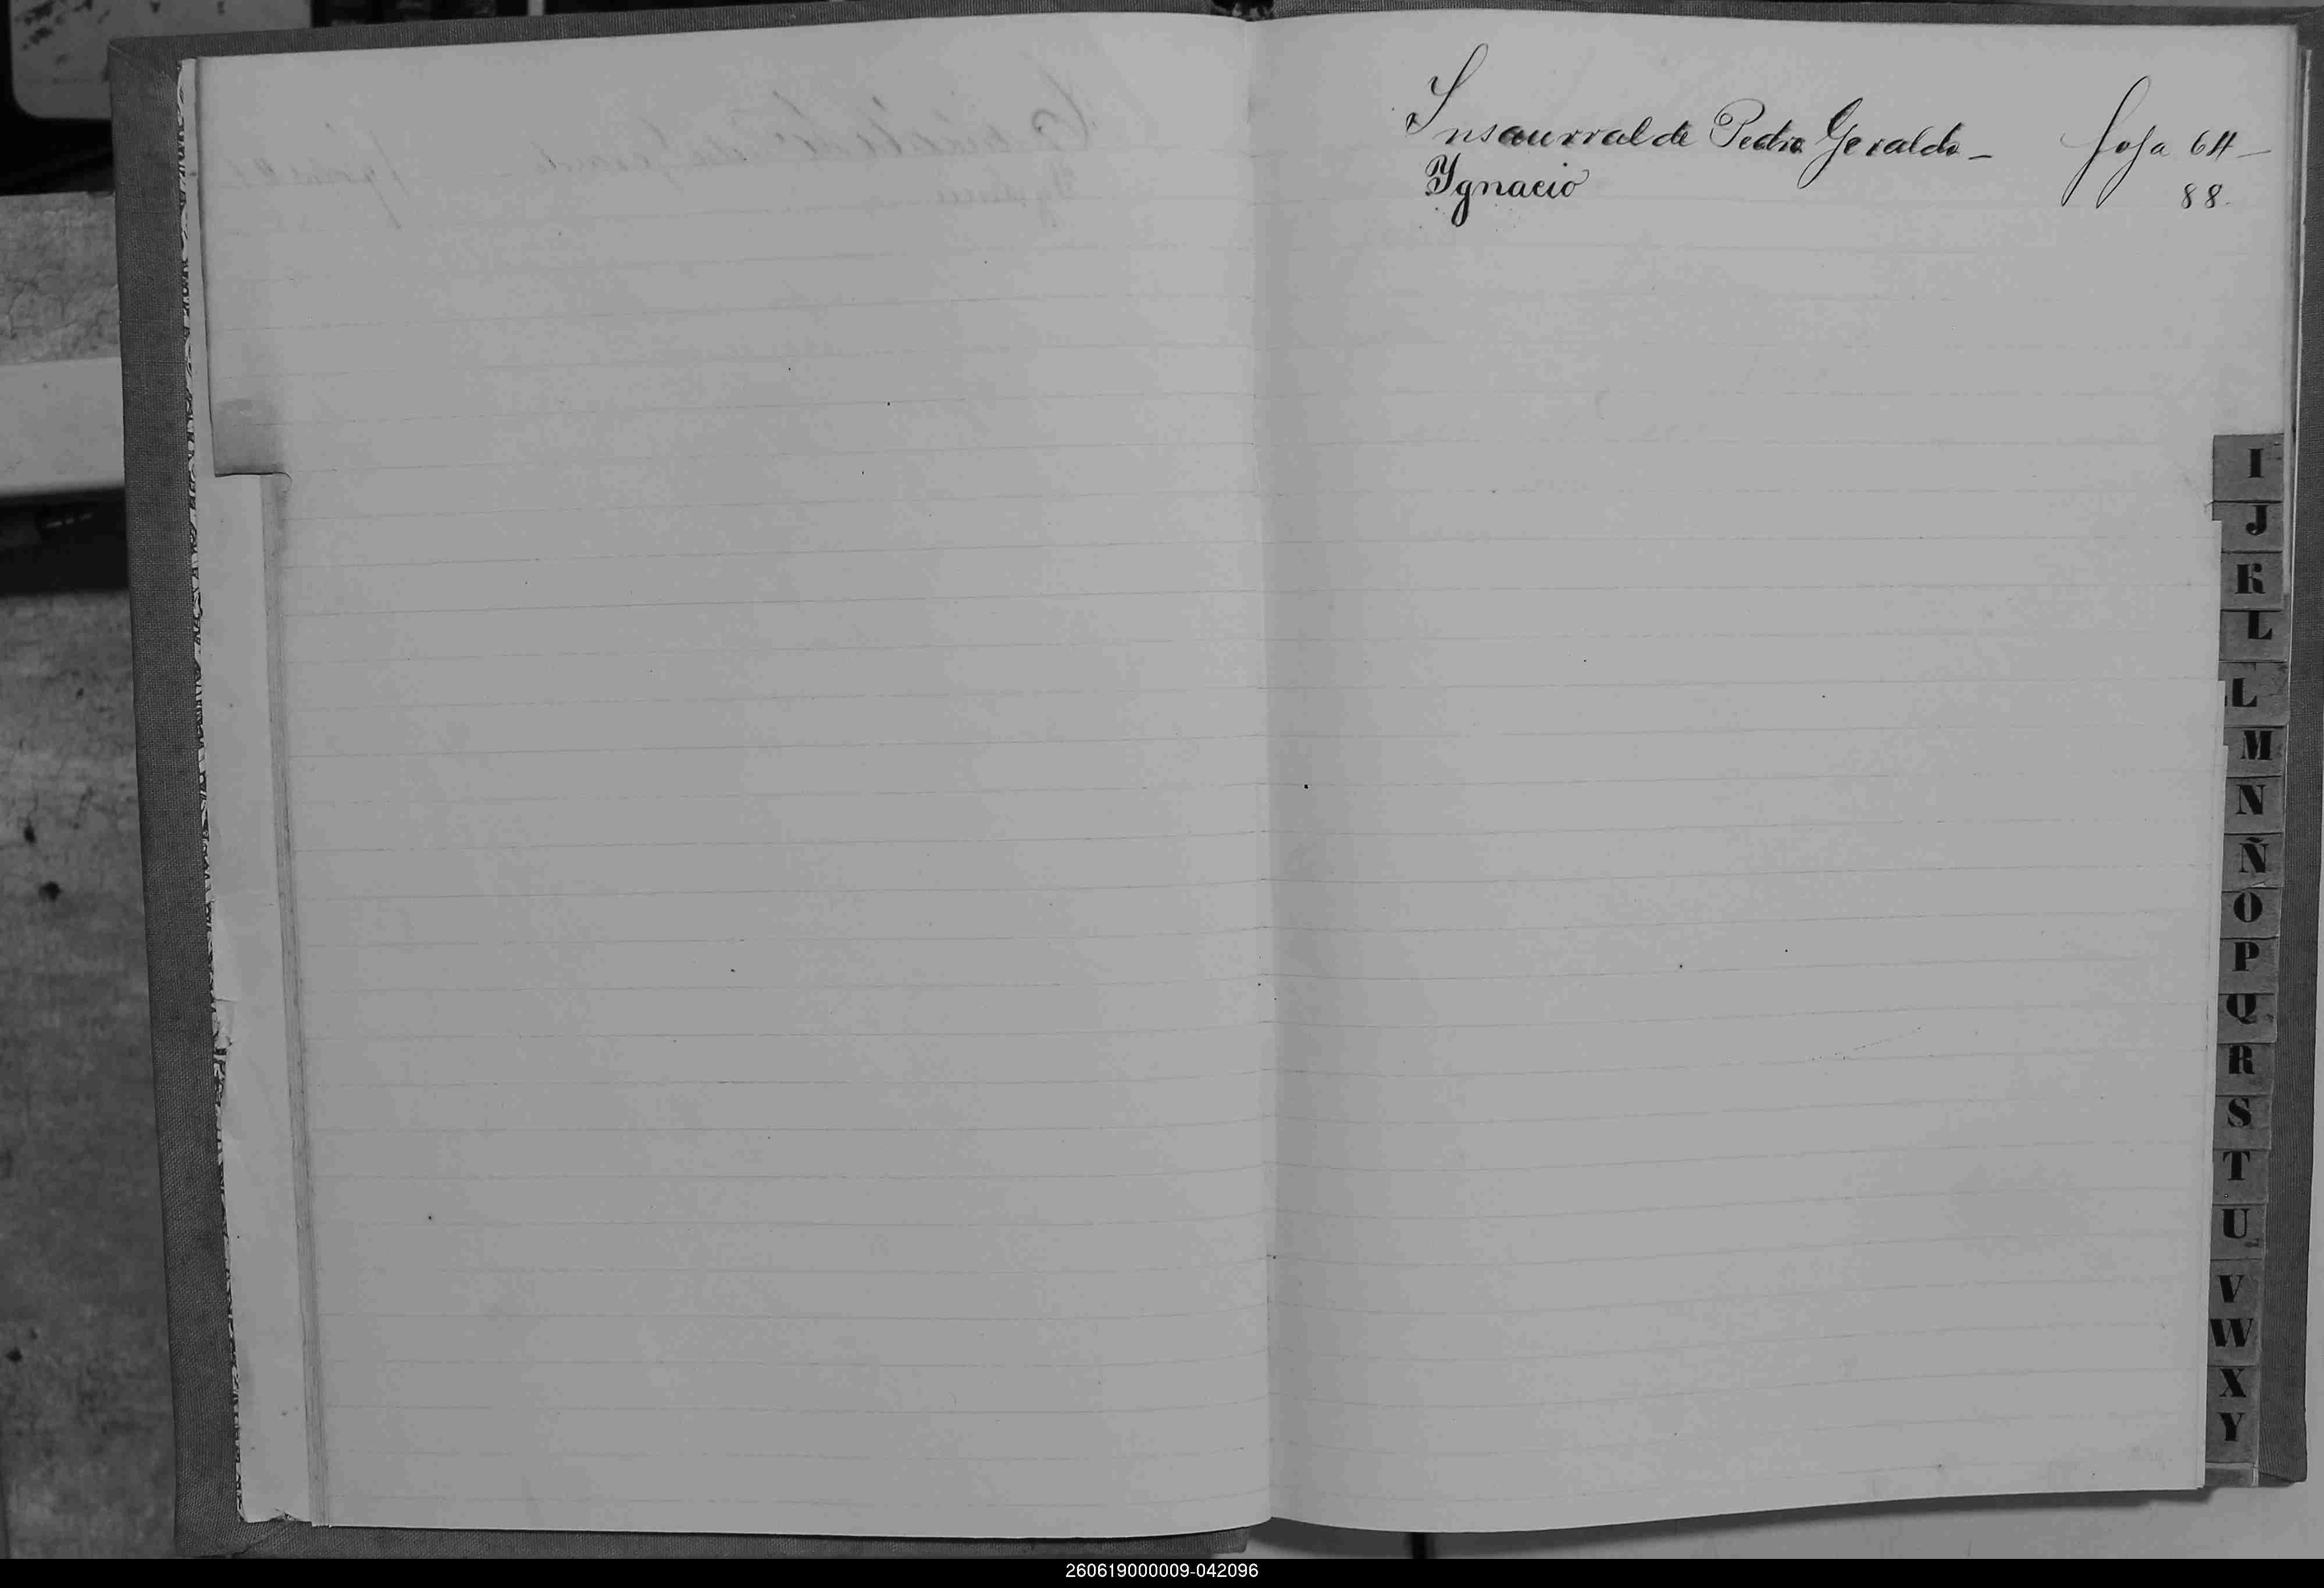 Insaurralde Pedro Geraldo — foja 64 —
Ygnacio 88.
I
J
K
L
LL
M
N
Ñ
O
P
Q
R
S
T
U
V
W
X
Y
260619000009-042096